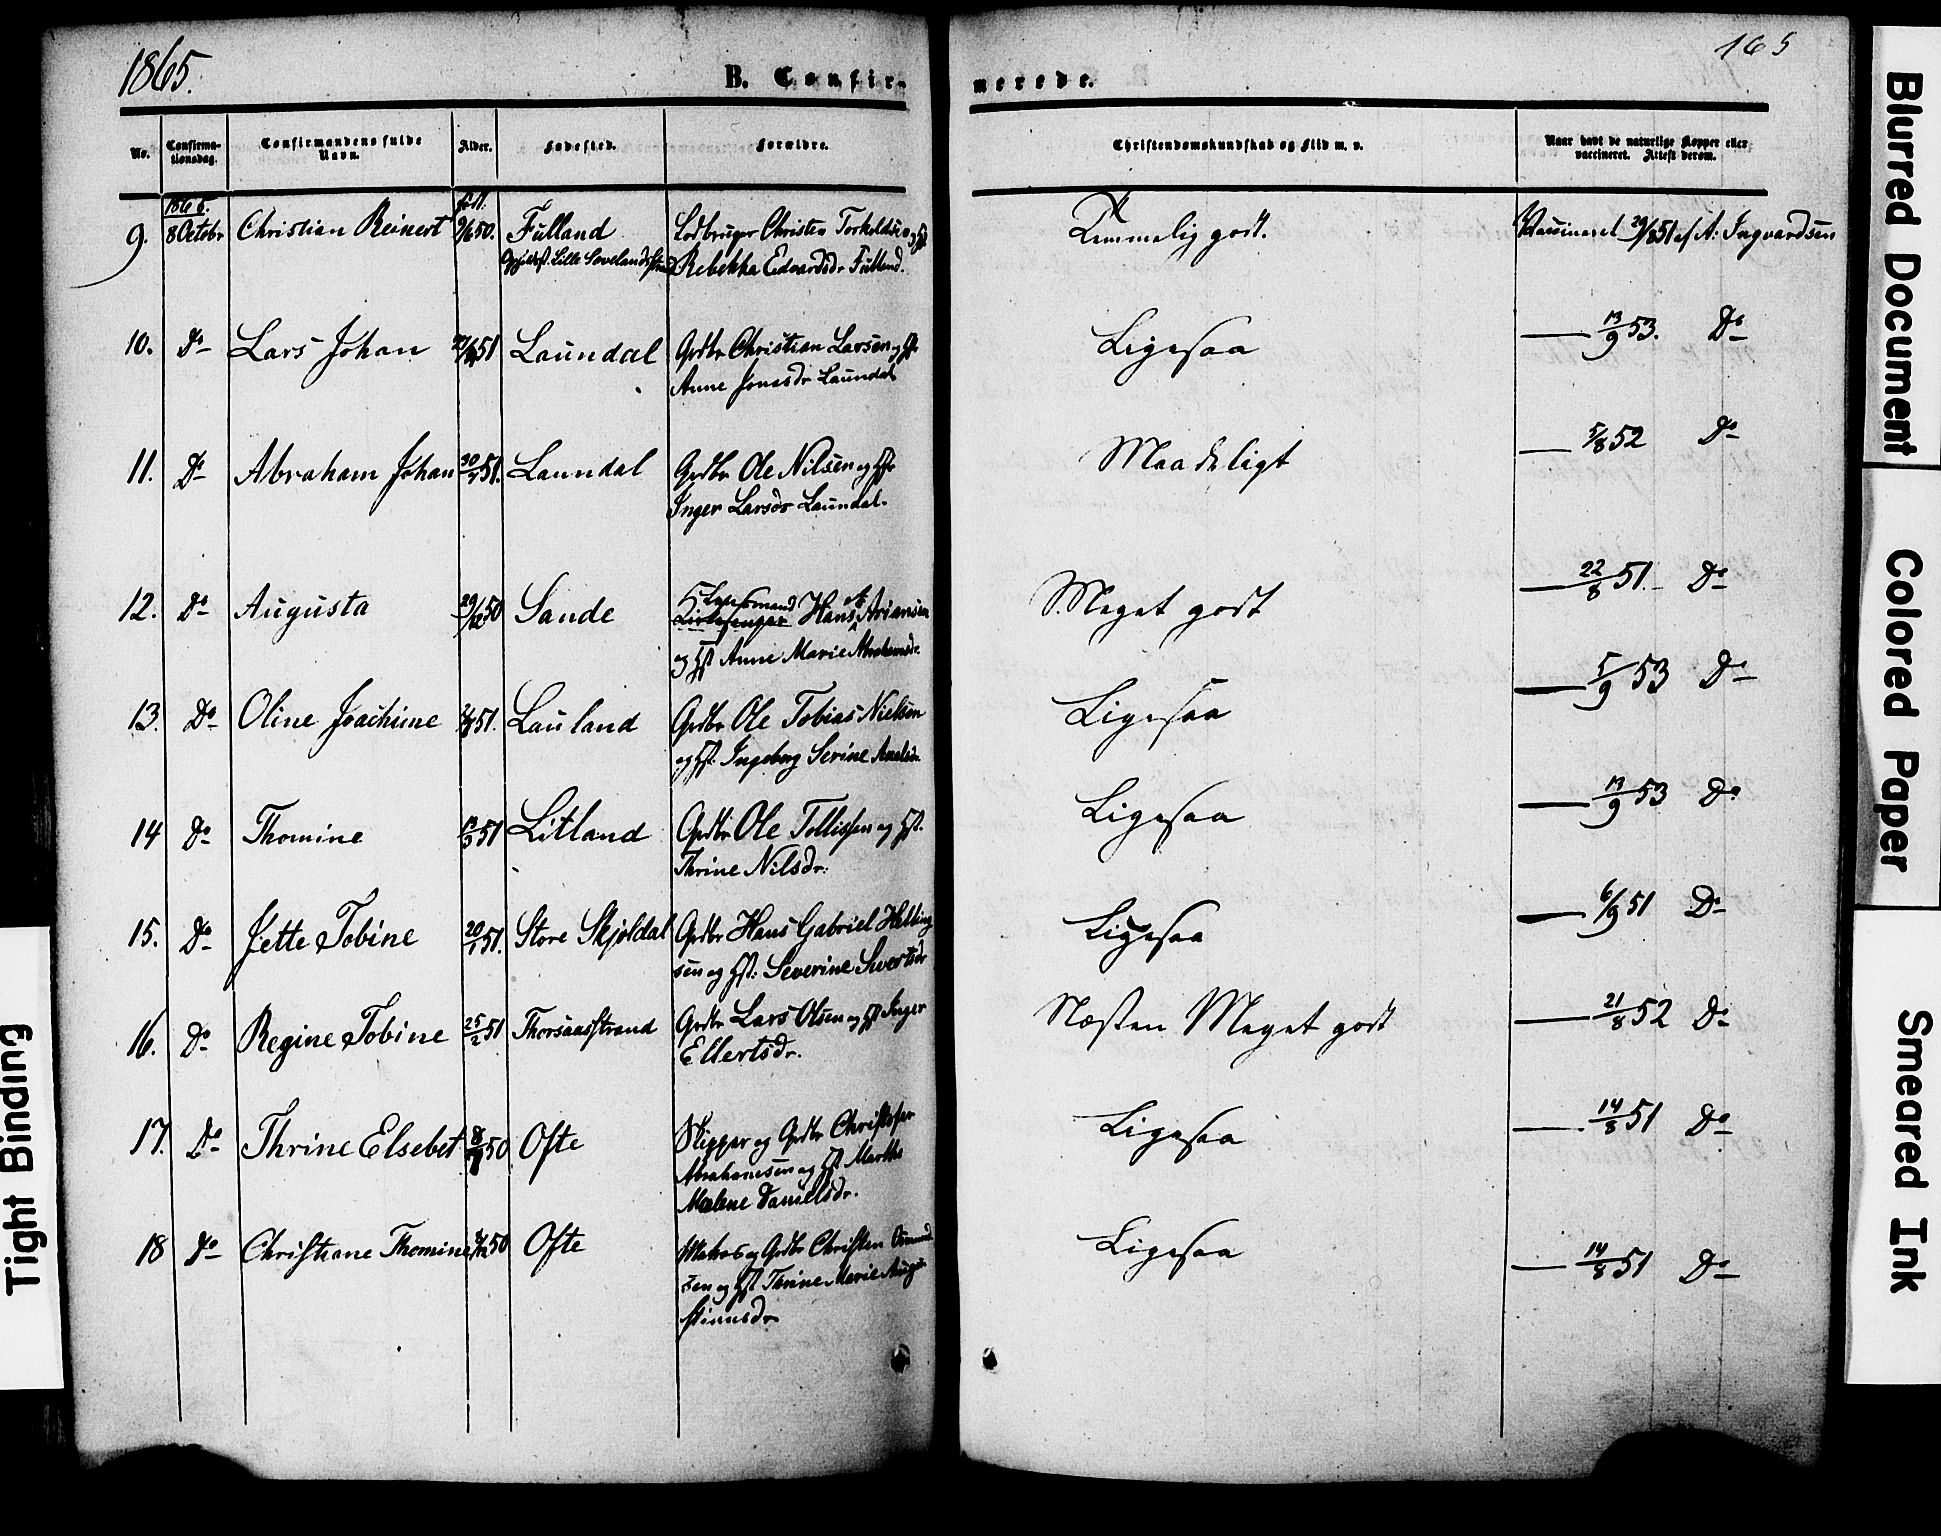 1865.
165
B. Confirmerede.
No.
Confirmationsdag.
Confirmandens fulde Navn.
Alder.
Fødested.
Forældre.
Christendomskundskab og Flid m. v.
Naar havt de naturlige Kopper eller vaccineret. Attest derom.
9. 1865. 8 Octobr Christian Reinert født 9/6 50. Fuland Christen Torkeldsen og
Rebekka Edvardsdr Fuland.
Temmelig godt. Vaccineret 29/8 51 af A: Ingvardsen
10. Do Lars Johan 51 Laundal Grdbr Christian Larsen og
Anne Jonasdr Laundal
Ligesaa — 13/9 53. Do
11. Do Abraham Johan 51. Laundal Grdbr Ole Nilsen og Hst
Inger Larsdr Laundal.
Maadeligt — 5/8 52 Do
12. Do Augusta 50 Sande Hans Ariansen
og Hst Anne Marie Abrahamsdr
Meget godt — 22/8 51. Do
13. Do Oline Joachime 51. Lauland Grdbr Ole Tobias Nielsen
og Hst. Ingeborg Serine
Ligesaa — 5/9 53 Do
14 Do Thomine 51 Litland Grdbr Ole Tollissen og Hst.
Thrine Nilsdr.
Ligesaa — 13/9 53 Do
15. Do Jette Tobine 20/1 51. Store Skjoldal Grdbr Hans Gabriel
sen og Hst: Severine Sivertsdr
Ligesaa — 6/9 51 Do
16. Do Regine Tobine 25/2 51 Thorsaasstrand Grdbr Lars Olsen og Hst Inger
Ellertsdr.
Næsten Meget godt — 21/8 52 Do
17. Do Thrine Elsebet 50 Ofte Skipper og Grdbr Christofer
Abrahamsen og Hst Marthe
Malene Danielsdr.
Ligesaa — 14/8 51 Do
18 Do Christiane Thomine 50 Ofte Matros og Grdbr Christen
sen og Hst Terine Marie Augu
stinusdr
Ligesaa — 14/8 51 Do
Blurred Document
Colored Paper
Smeared Ink
Tight Binding